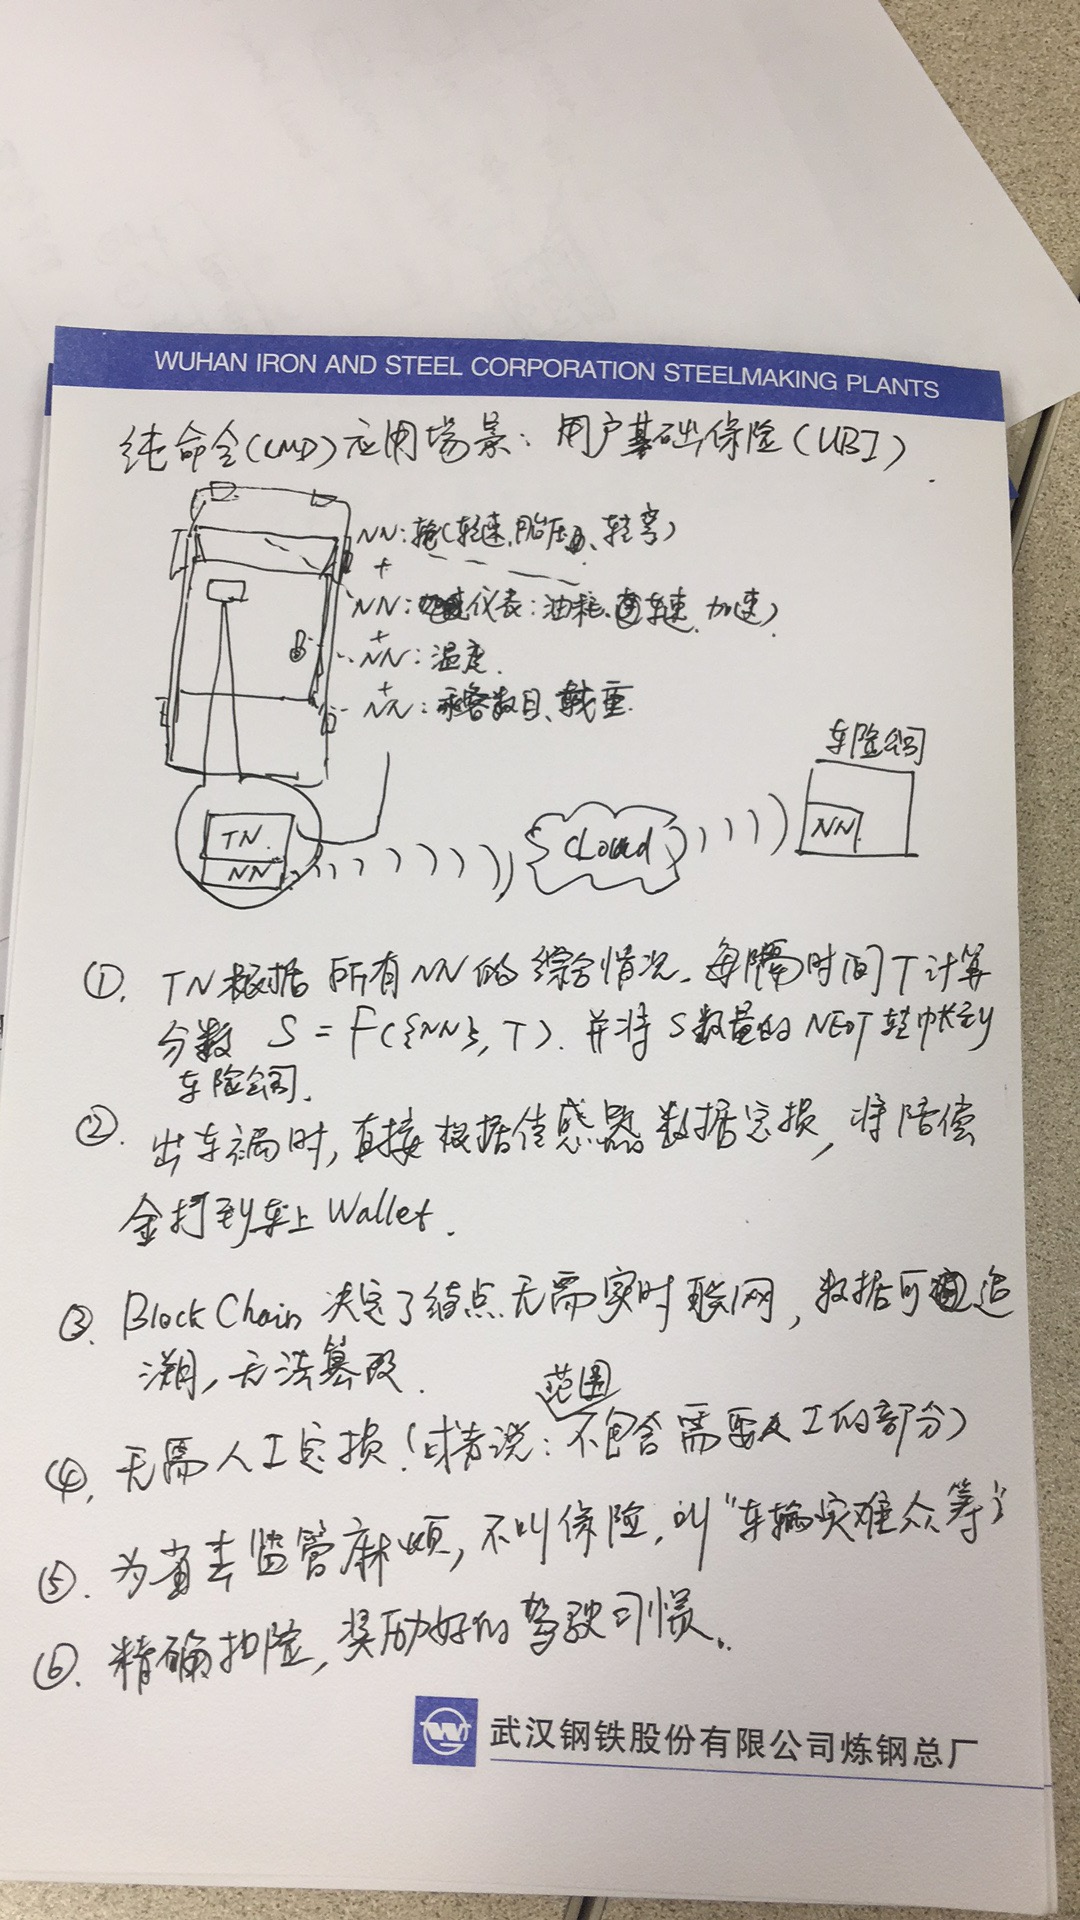 WUHAN IRON AND STEEL CORPORATION STEELMAKING PLANTS
纯命令(CMD)应用场景：用户基础保险(UBI)
NN：轮(转速、胎压、转弯)
+
NN：仪表：油耗、车速、加速)
+
NN：温度.
+
NN：乘客数目、载重.
车险公司
TN.
NN
Cloud
NN
①. TN根据所有NN的综合情况、每隔时间T计算
分数 S = F({NN}, T). 并将S数量的NEOT转帐到
车险公司.
②. 出车祸时, 直接根据传感器数据定损, 将陪偿
金打到车上Wallet.
③. Block Chain 决定了结点无需实时联网, 数据可追
溯, 无法篡改.
范围
④. 无需人工定损!(或者说: 不包含需要人工的部分)
⑤. 为省去监管麻烦, 不叫保险, 叫"车辆灾难众筹"
⑥. 精确扣险, 奖励好的驾驶习惯.
武汉钢铁股份有限公司炼钢总厂